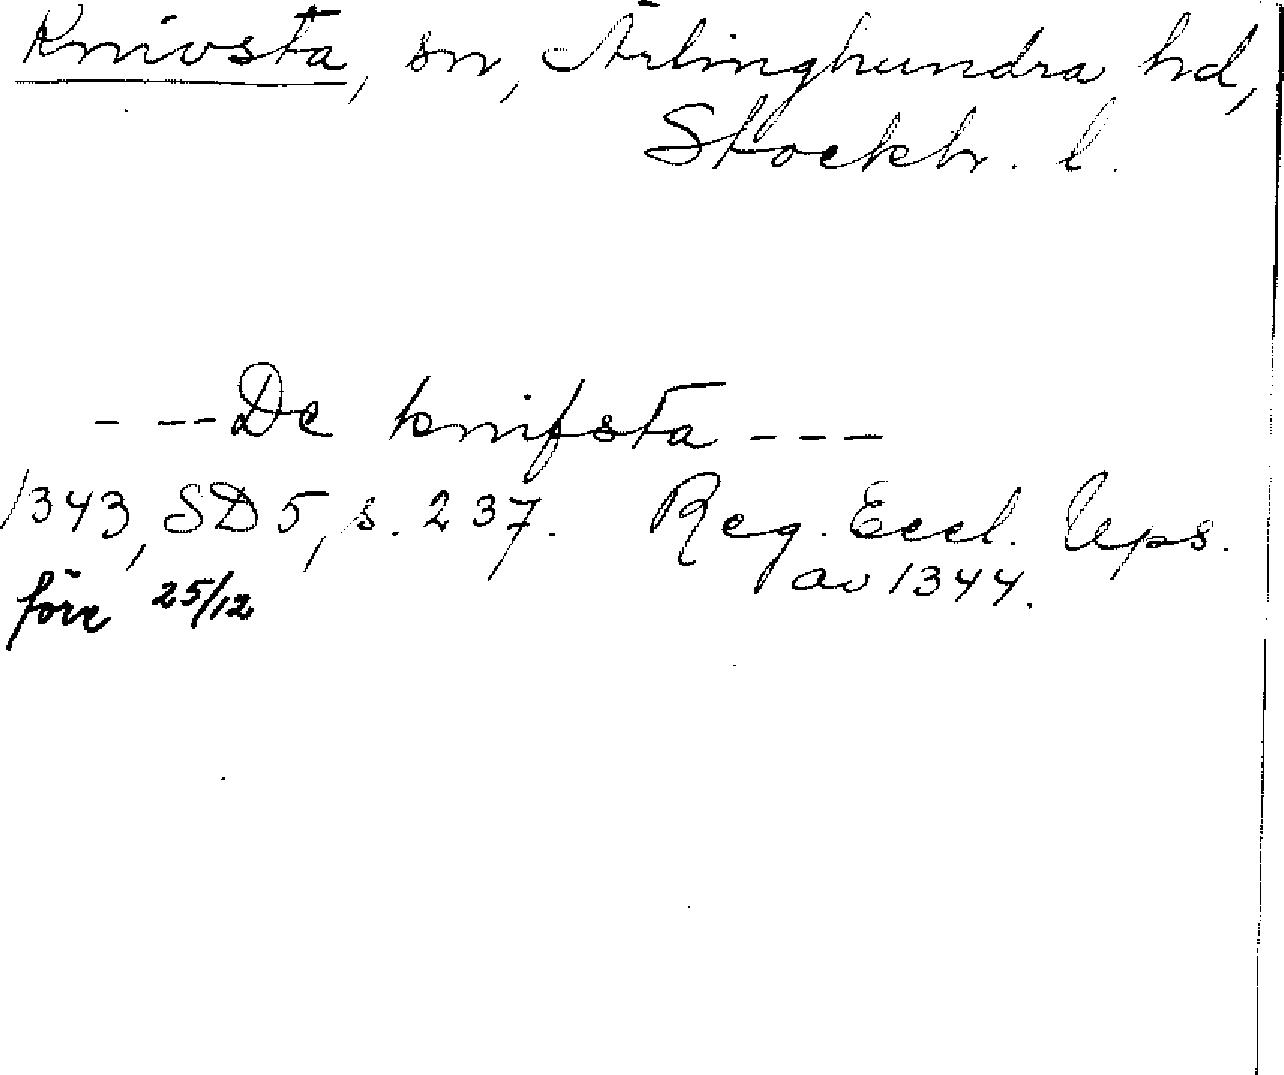 Knivsta, sn, Ärlinghundra hd,
Stockh. l.
- -- De knifsta ---
1343, SD 5, s. 237. Reg. Eccl. Ups.
av 1344.
före 25/12